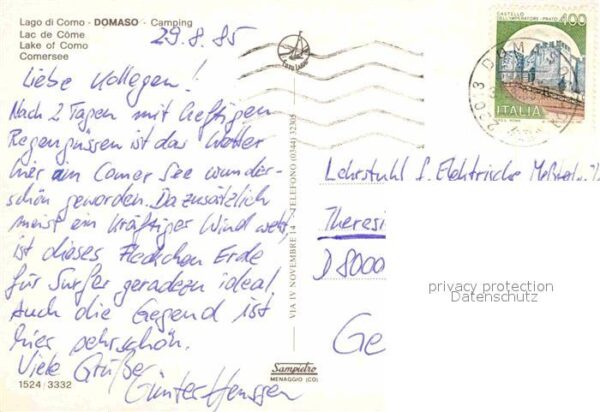 Lago di Como - DOMASO - Camping
Lac de Côme
Lake of Como
Comersee
29.8.85
Liebe Kollegen!
Nach 2 Tagen mit heftigen
Regengüssen ist das Wetter
hier am Comer See wunder-
schön geworden. Da zusätzlich
meist ein kräftiger Wind weht,
ist dieses Fleckchen Erde
für Surfer geradezu ideal
Auch die Gegend ist
hier sehr schön.
Viele Grüße
Günter
1524 / 3332
VIA IV NOVEMBRE 14 - TELEFONO (0344) 32305
Sampietro
MENAGGIO (CO)
CASTELLO
DELL'IMPERATORE - PRATO
400
ITALIA
22013 DOMASO
Lehrstuhl f. Elektrische
Theresi
D 8000
Ge
privacy protection
Datenschutz